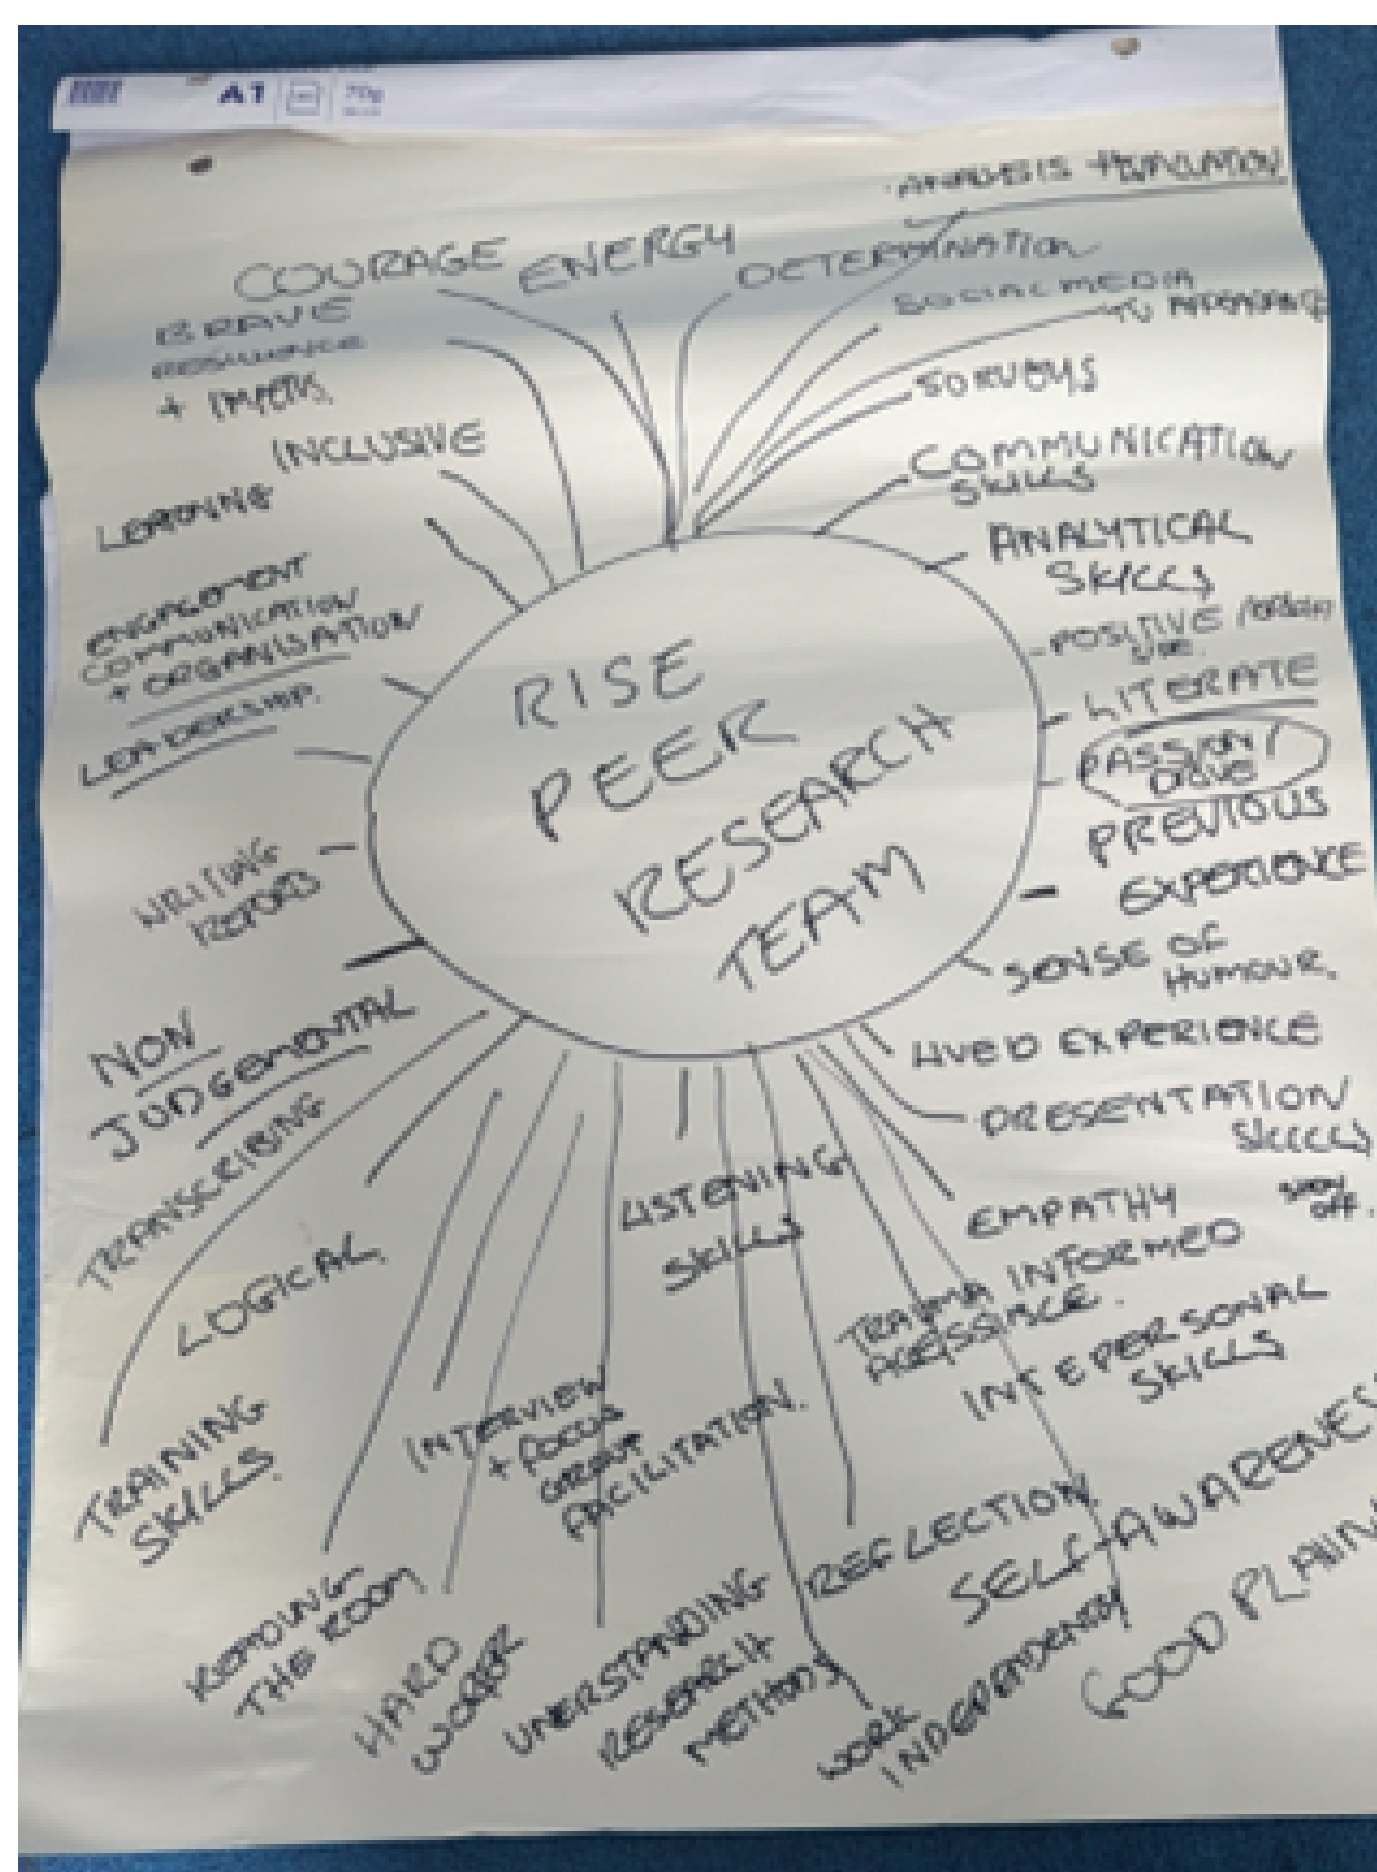 A1
70g
RISE
PEER
RESEARCH
TEAM
COURAGE
ENERGY
DETERMINATION
ANALYSIS +
SOCIAL MEDIA
TV
SURVEYS
COMMUNICATION
SKILLS
ANALYTICAL
SKILLS
POSITIVE /
LITERATE
PASSION /
DRIVE
PREVIOUS
EXPERIENCE
SENSE OF
HUMOUR.
LIVED EXPERIENCE
PRESENTATION
SKILLS
SHOW
OFF.
EMPATHY
TRAUMA INFORMED
INTEPERSONAL
SKILLS
SELF-AWARENESS
GOOD PLANN
WORK
INDEPENDENTLY
REFLECTION
LISTENING
SKILLS
UNERSTANDING
RESEARCH
METHODS
INTERVIEW
+ FOCUS
GROUP
FACILITATION.
HARD
WORKER
READING
THE ROOM
TRAINING
SKILLS
LOGICAL
TRANSCRIBING
NON
JUDGEMENTAL
WRITING
REPORTS
LEADERSHIP.
ENGAGEMENT
COMMUNICATION
+ ORGANISATION
LEARNING
INCLUSIVE
BRAVE
RESILIENCE
+